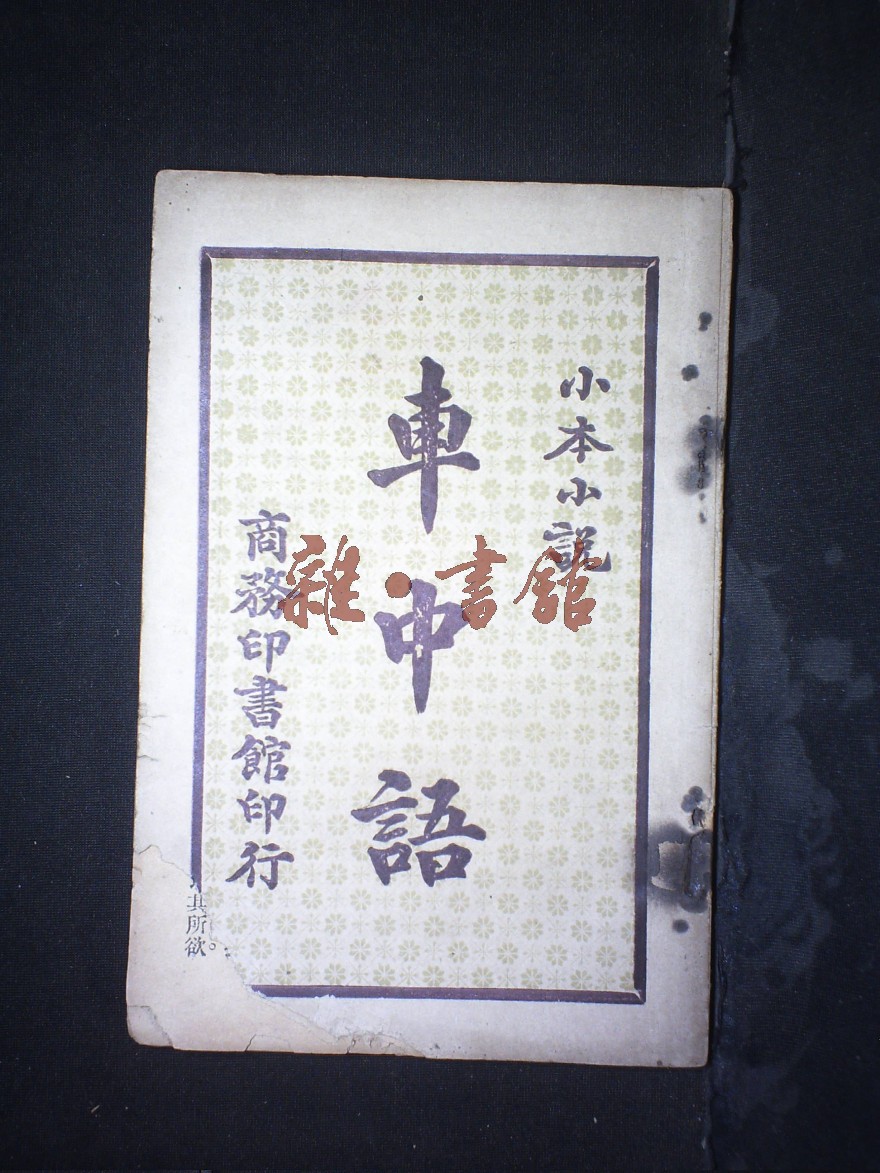 小本小説
車中語
商務印書館印行
其所欲。
雜·書館